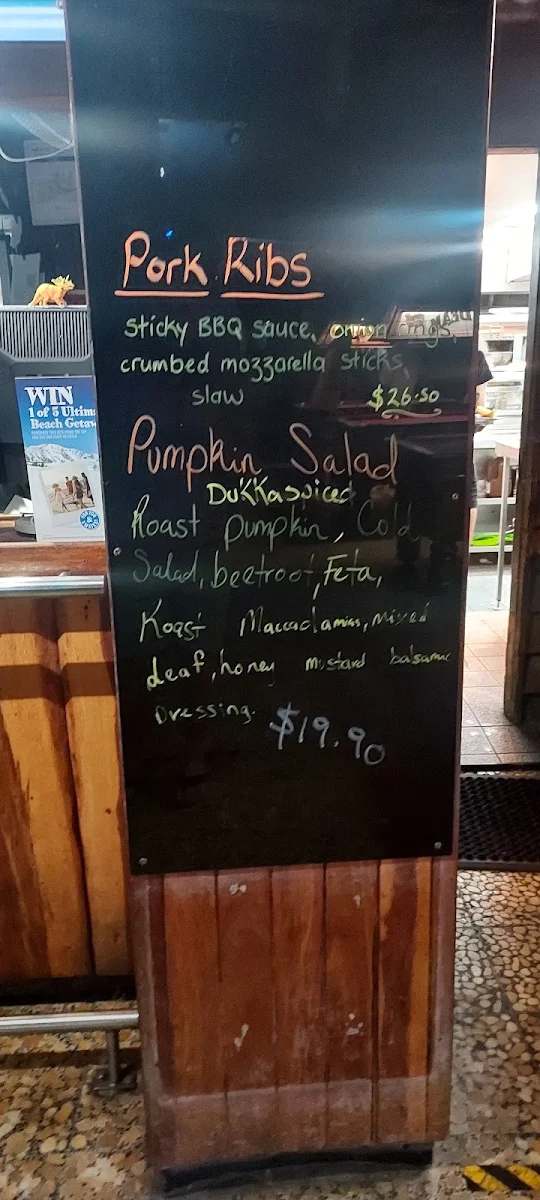 Pork Ribs
sticky BBQ sauce, onion rings,
crumbed mozzarella sticks,
slaw $26.50
Pumpkin Salad
Dukkaspiced
Roast pumpkin, Cold
Salad, beetroot, Feta,
Roast Macadamias, mixed
leaf, honey mustard balsamic
Dressing. $19.90
WIN
1 of 5 Ultim
Beach Getaw